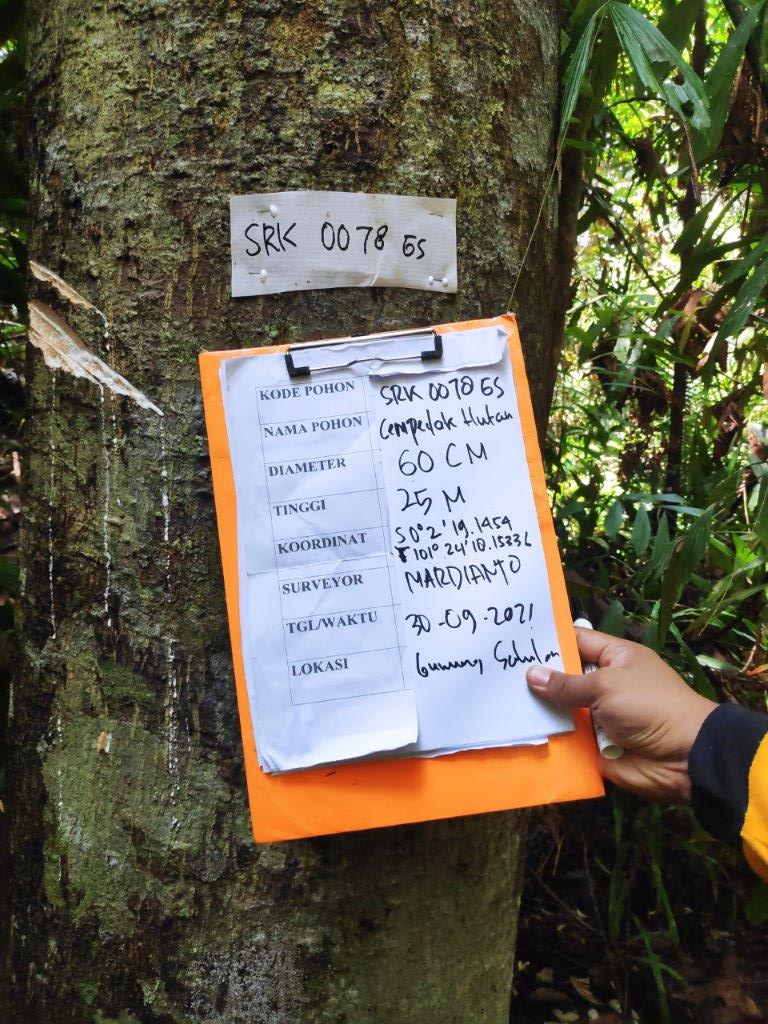 SRK 0078 ES
KODE POHON SRK 0078 ES
NAMA POHON Cempedok Hutan
DIAMETER 60 CM
TINGGI 25 M
KOORDINAT S 0° 2' 19.1454
101° 24' 10.15336
SURVEYOR MARDIANTO
TGL/WAKTU 30-09-2021
LOKASI Gunung Sahilan